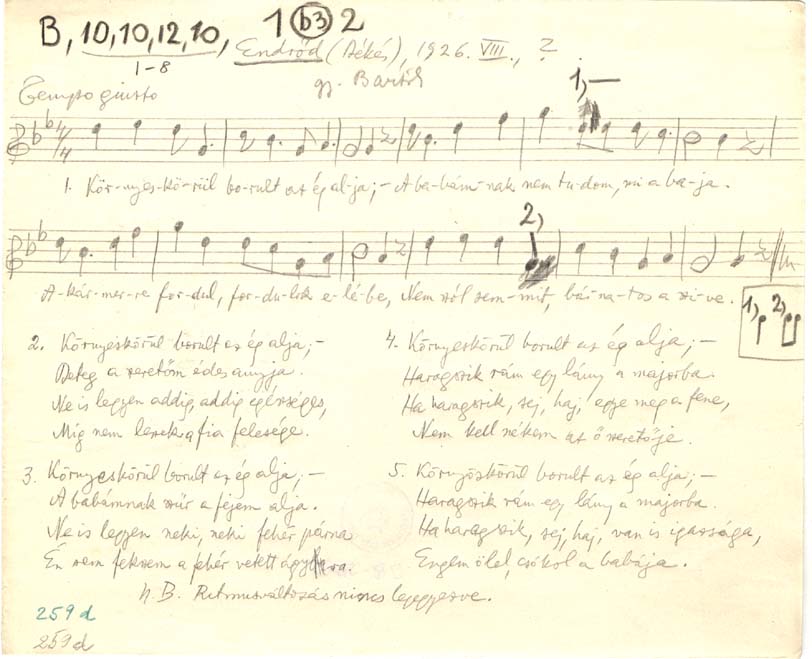 B, 10, 10, 12, 10, 1 b3 2
1-8
Endrőd (Békés), 1926. VIII., ?
gy. Bartók
Tempo giusto
1,—
4/4
1. Kör-nyes-kö-rül bo-rult az ég al-ja; – A ba-bám-nak nem tu-dom, mi a ba-ja.
2,
A-kár-mer-re for-dul, for-du-lok e-lé-be, Nem szól sem-mit, bá-na-tos a szi-ve.
1, 2,
2. Környeskörül borult az ég alja; –
Beteg a szeretőm édesanyja.
Ne is legyen addig, addig egésséges,
Míg nem leszek a fia felesége.
3. Környeskörül borult az ég alja; –
A babámnak szúr a fejem alja.
Ne is legyen neki, neki fehér párna
Én sem fekszem a fehér vetett ágyára.
4. Környeskörül borult az ég alja; –
Haragszik rám egy lány a majorba.
Ha haragszik, sej, haj, egye meg a fene,
Nem kell nékem az ő szeretője.
5. Környöskörül borult az ég alja; –
Haragszik rám egy lány a majorba.
Ha haragszik, sej, haj, van is igazsága,
Engem ölel, csókol a babája.
N.B. Ritmusváltozás nincs lejegyezve.
259d
259d